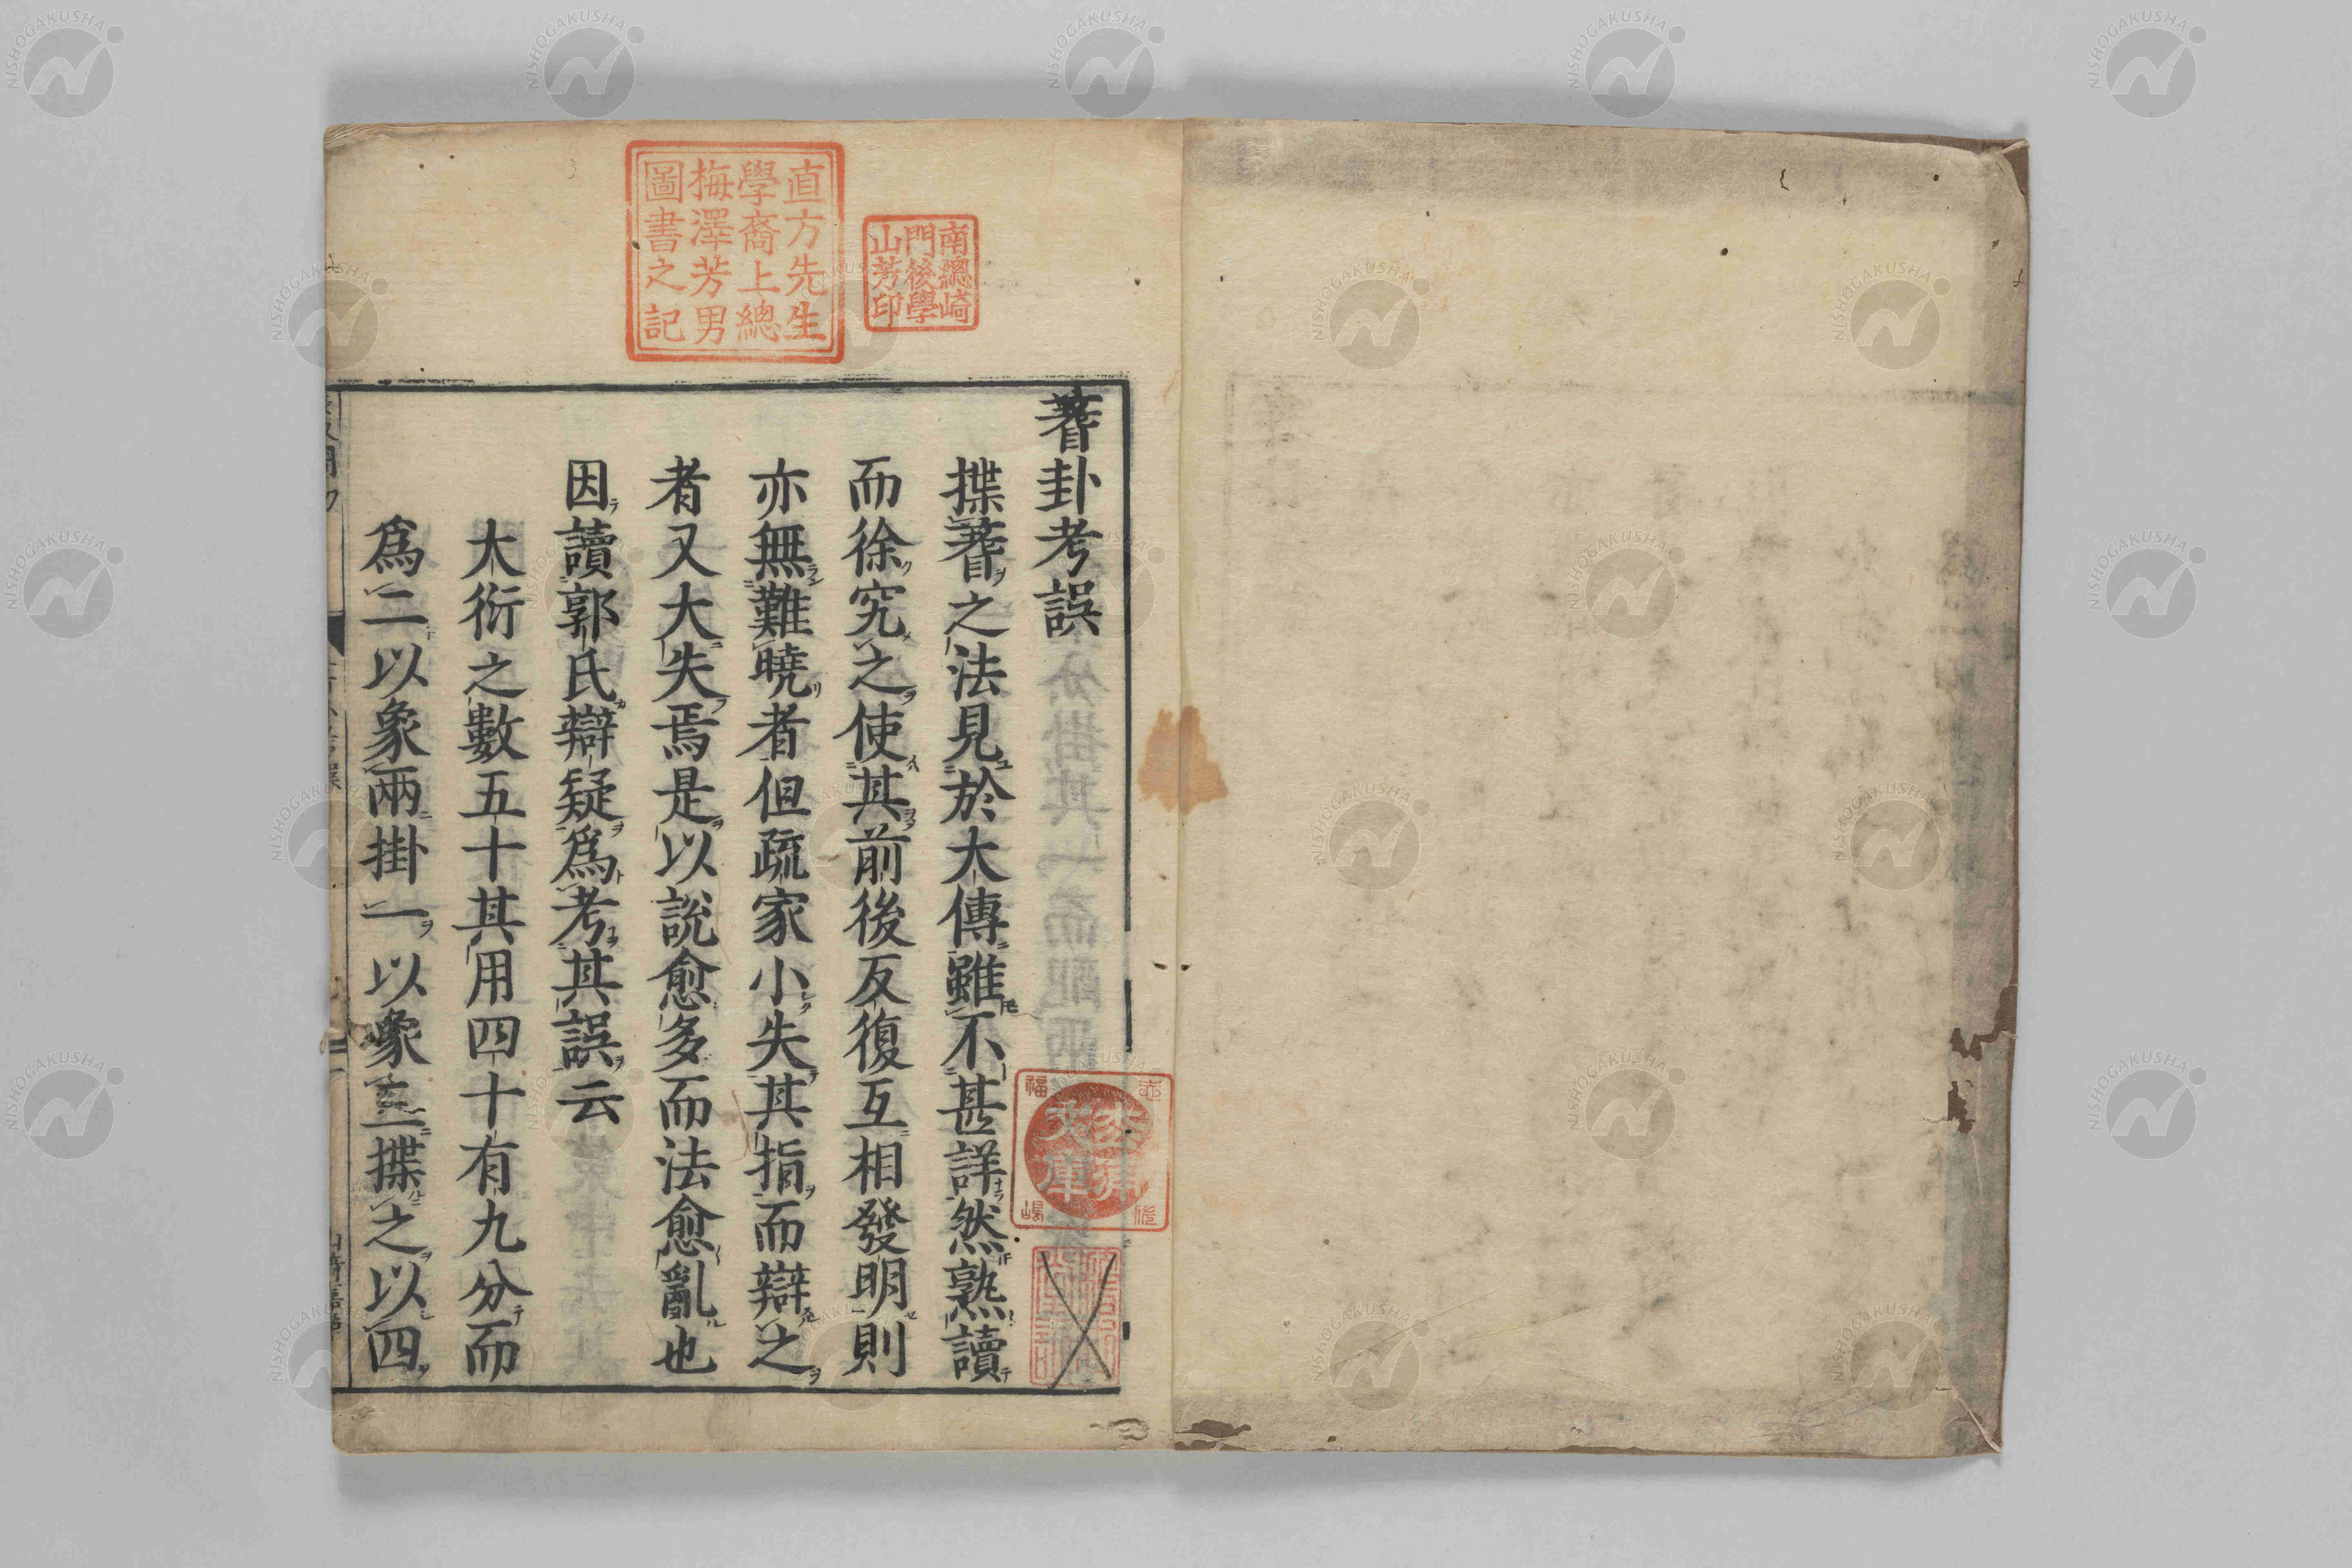 蓍卦考誤
揲蓍之法見於大傳雖不甚詳然熟讀
而徐究之使其前後反復互相發明則
亦無難曉者但疏家小失其指而辯之
者又大失焉是以說愈多而法愈亂也
因讀郭氏辯疑爲考其誤云
大衍之數五十其用四十有九分而
爲二以象兩掛一以象三揲之以四
南總崎
門後學
山芳印
直方先生
學裔上總
梅澤芳男
圖書之記
文庫
福
NISHOGAKUSHA